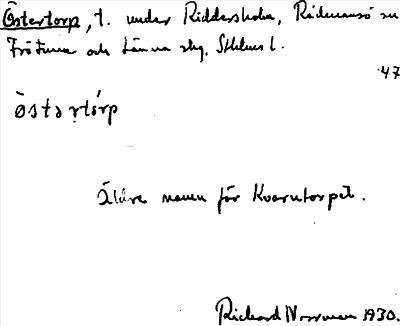 Östertorp, t. under Riddersholm, Rådmansö sn
Frötuna och Länna slg, Sthlms l.
47
östərtórp
Äldre namn för Kvarntorpet.
Richard Norrman 1930.